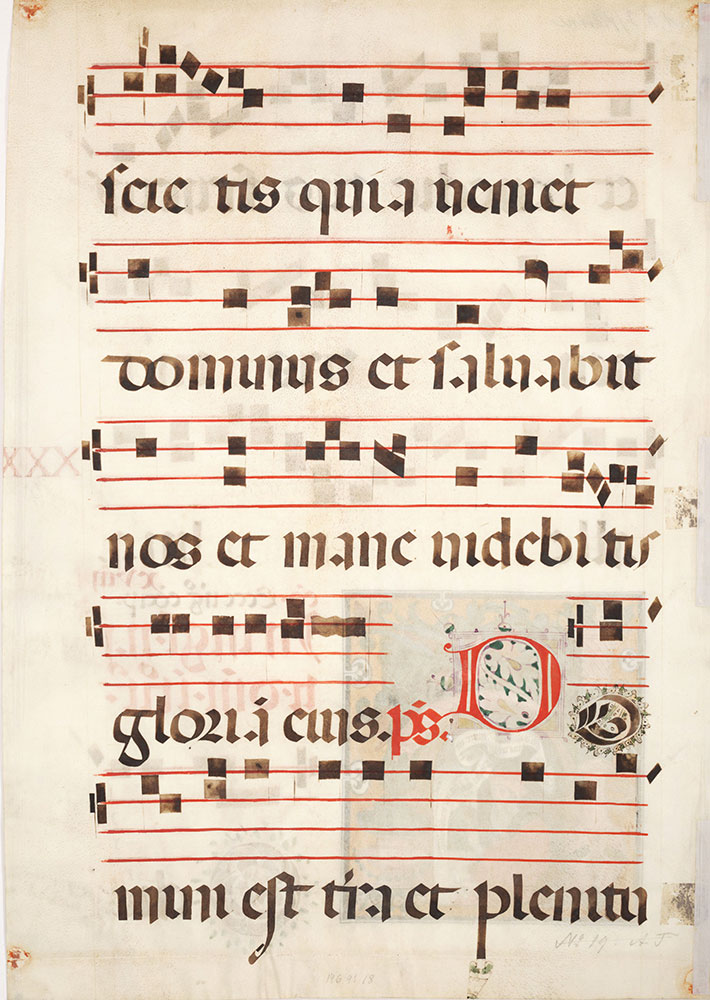 scie tis quia ueniet
dominus et saluabit
nos et mane uidebi tis
gloria eius. p̄s. D O
mini est tr̄a et plenitu